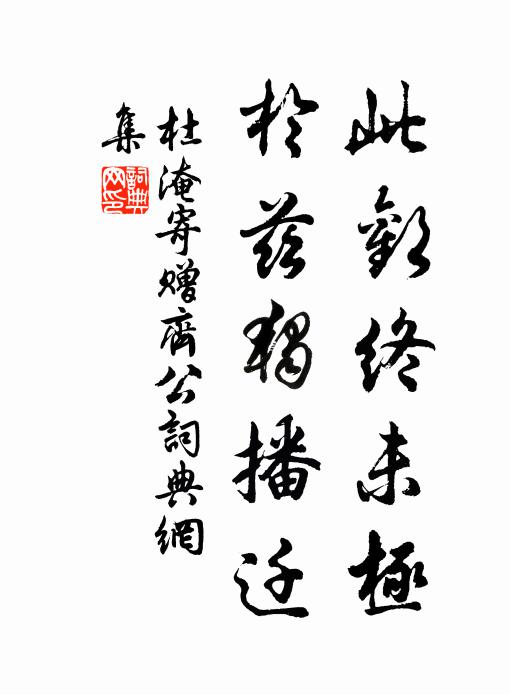 此歡終未極
於茲獨播迁
杜淹寄贈齊公詞典網
集
詞典
网印